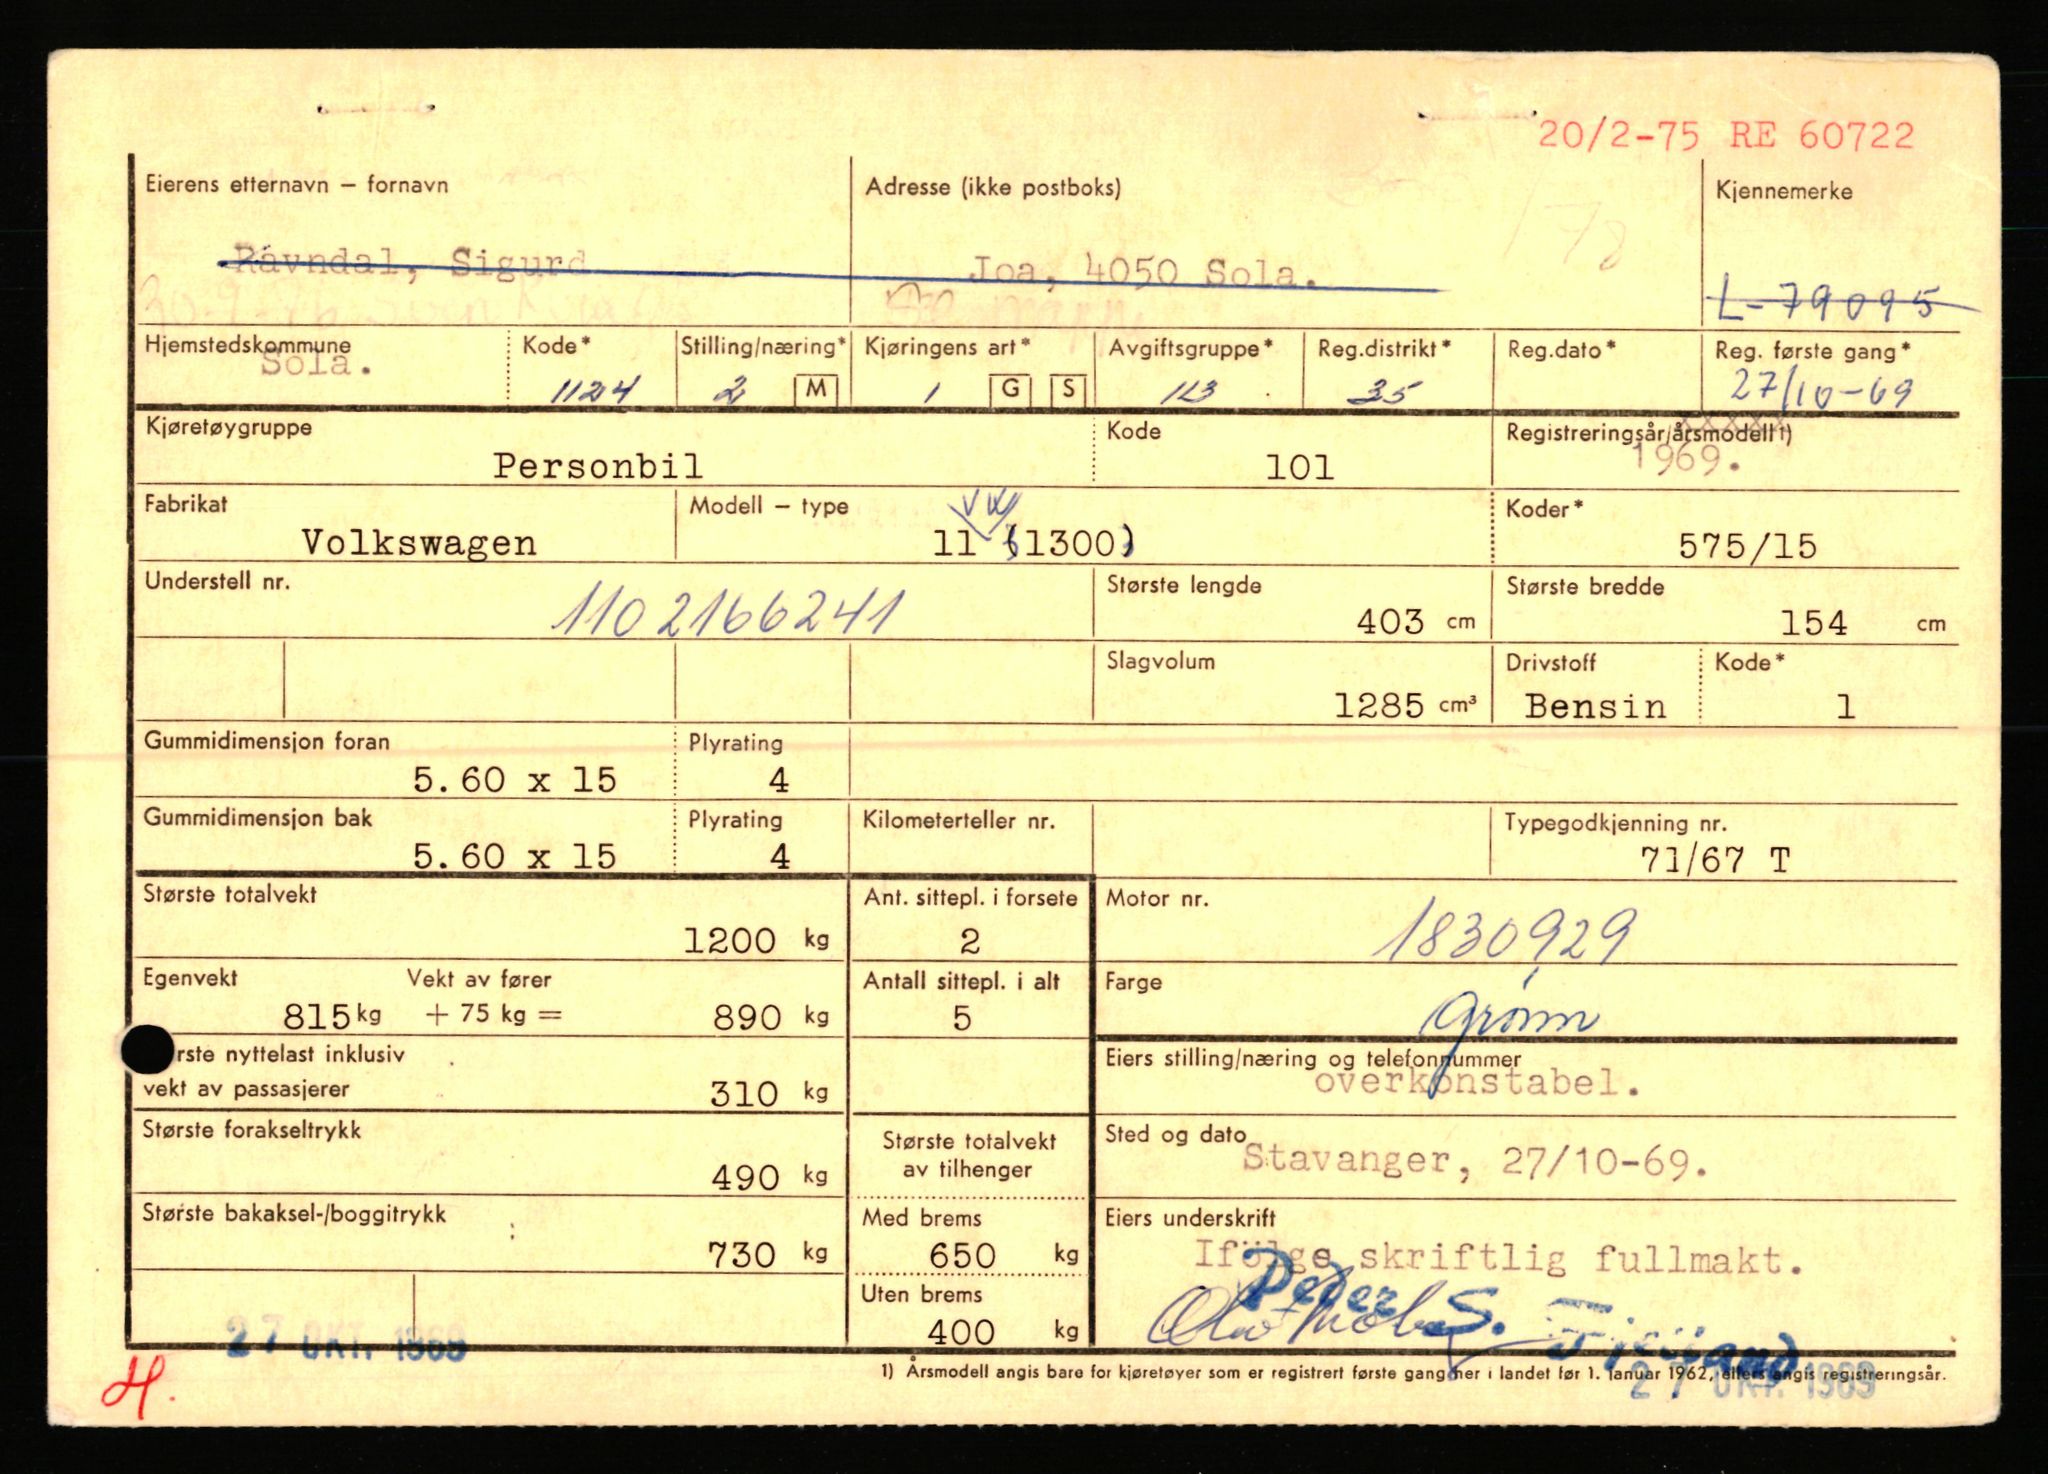 20/2-75 RE 60722
Eierens etternavn – fornavn Adresse (ikke postboks) Kjennemerke
178
Ravndal, Sigurd Joa, 4050 Sola. L-79095
Hjemstedskommune Kode* Stilling/næring* Kjøringens art* Avgiftsgruppe* Reg.distrikt* Reg.dato* Reg. første gang*
Sola. 1124 2 M 1 G S 113 35 27/10-69
Kjøretøygruppe Kode Registreringsår/årsmodell 1)
xxxxx
Personbil 101 1969.
Fabrikat Modell – type VW Koder*
Volkswagen 11 (1300) 575/15
Understell nr. Største lengde Største bredde
1102166241 403 cm 154 cm
Slagvolum Drivstoff Kode*
1285 cm³ Bensin 1
Gummidimensjon foran Plyrating
5.60 x 15 4
Gummidimensjon bak Plyrating Kilometerteller nr. Typegodkjenning nr.
5.60 x 15 4 71/67 T
Største totalvekt Ant. sittepl. i forsete Motor nr.
1200 kg 2 1830929
Egenvekt Vekt av fører Antall sittepl. i alt Farge
815 kg + 75 kg = 890 kg 5 Grønn
rste nyttelast inklusiv Eiers stilling/næring og telefonnummer
vekt av passasjerer 310 kg overkonstabel.
Største forakseltrykk Største totalvekt Sted og dato
490 kg av tilhenger Stavanger, 27/10-69.
Største bakaksel-/boggitrykk Med brems Eiers underskrift
730 kg 650 kg Ifölge skriftlig fullmakt.
Uten brems Peder S.
400 kg
27 OKT. 1969
H. 1) Årsmodell angis bare for kjøretøyer som er registrert første gang her i landet før 1. januar 1962, ellers angis registreringsår.
27 OKT. 1969